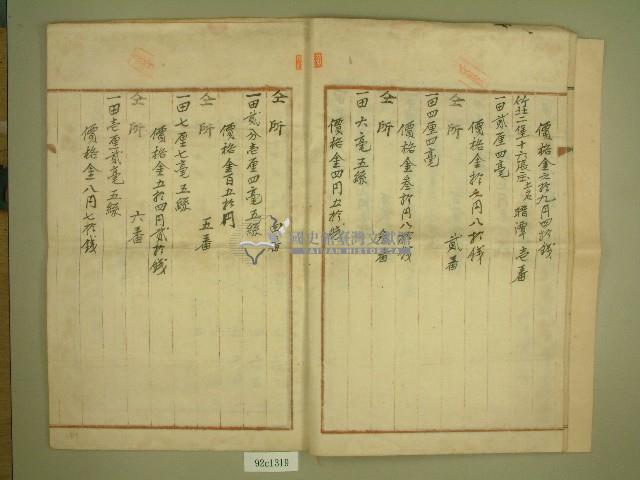 價格金六拾九円四拾錢
竹北二堡十六張庄土名暗潭 壱番
一田貳厘四毫
價格金拾六円八拾錢
仝所 貳番
一田四厘四毫
價格金叁拾円八拾錢
仝所 番
一田六毫五絲
價格金四円五拾錢
仝所 四番
一田貳分壱厘四毫五絲
價格金百五拾円
仝所 五番
一田七厘七毫五絲
價格金五拾四円貳拾錢
仝所 六番
一田壱厘貳毫五絲
價格金八円七拾錢
國史館臺灣文獻館
TAIWAN HISTORICA
92c1319